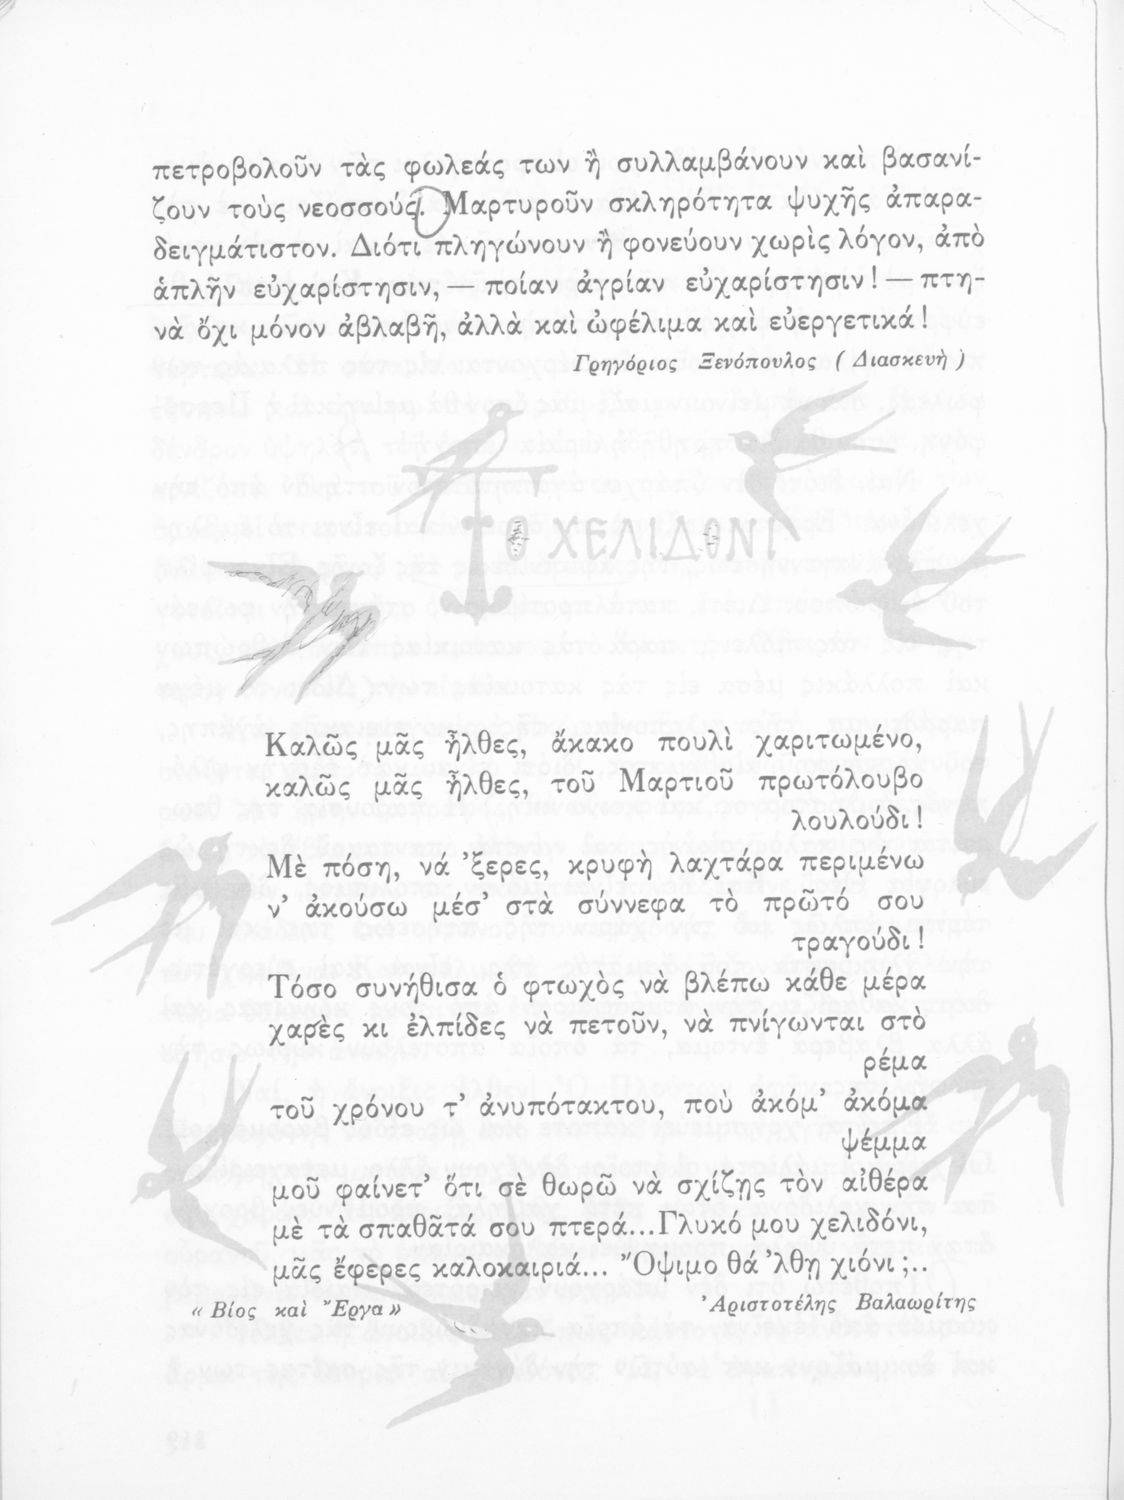 πετροβολοῦν τὰς φωλεάς των ἢ συλλαμβάνουν καὶ βασανί-
ζουν τοὺς νεοσσούς. Μαρτυροῦν σκληρότητα ψυχῆς ἀπαρα-
δειγμάτιστον. Διότι πληγώνουν ἢ φονεύουν χωρὶς λόγον, ἀπὸ
ἁπλῆν εὐχαρίστησιν, — ποίαν ἀγρίαν εὐχαρίστησιν! — πτη-
νὰ ὄχι μόνον ἀβλαβῆ, ἀλλὰ καὶ ὠφέλιμα καὶ εὐεργετικά!
Γρηγόριος Ξενόπουλος ( Διασκευὴ )
ΤΟ ΧΕΛΙΔΟΝΙ
Καλῶς μᾶς ἦλθες, ἄκακο πουλὶ χαριτωμένο,
καλῶς μᾶς ἦλθες, τοῦ Μαρτιοῦ πρωτόλουβο
λουλούδι!
Μὲ πόση, νά ’ξερες, κρυφὴ λαχτάρα περιμένω
ν’ ἀκούσω μέσ’ στὰ σύννεφα τὸ πρῶτό σου
τραγούδι!
Τόσο συνήθισα ὁ φτωχὸς νὰ βλέπω κάθε μέρα
χαρὲς κι ἐλπίδες νὰ πετοῦν, νὰ πνίγωνται στὸ
ρέμα
τοῦ χρόνου τ’ ἀνυπότακτου, ποὺ ἀκόμ’ ἀκόμα
ψέμμα
μοῦ φαίνετ’ ὅτι σὲ θωρῶ νὰ σχίζῃς τὸν αἰθέρα
μὲ τὰ σπαθᾶτά σου πτερά...Γλυκό μου χελιδόνι,
μᾶς ἔφερες καλοκαιριά... Ὄψιμο θά ’λθῃ χιόνι;..
« Βίος καὶ Ἔργα » Ἀριστοτέλης Βαλαωρίτης